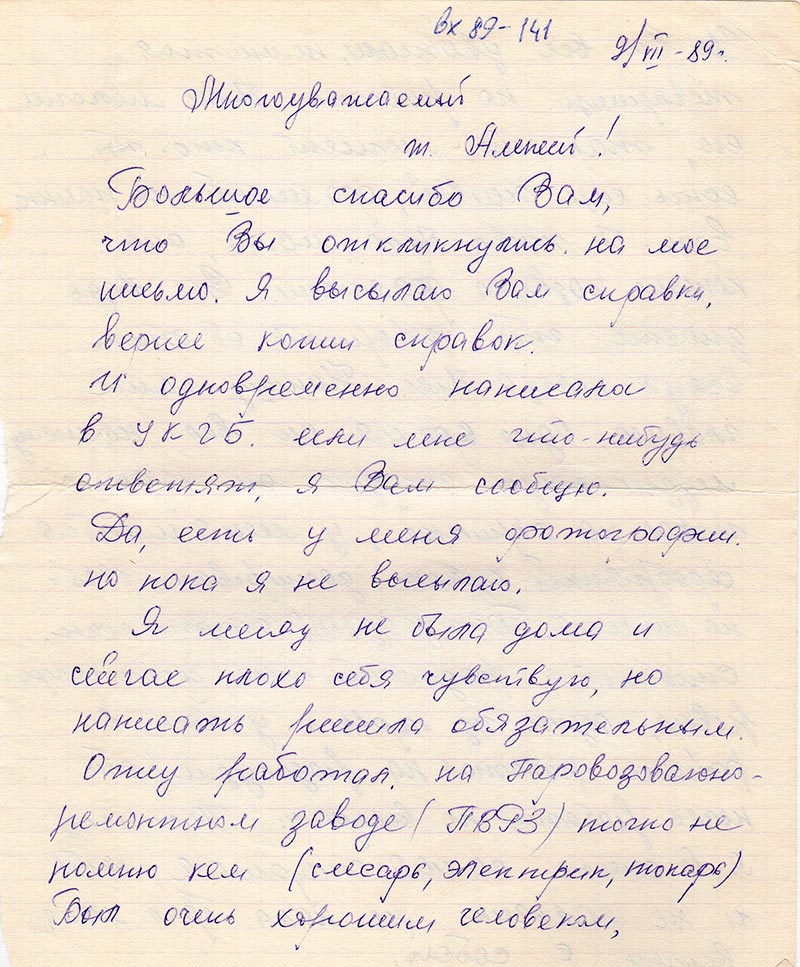 вх 89-141
9/VII-89г.
Многоуважаемый
т. Алексей!
Большое спасибо Вам,
что Вы откликнулись. на мое
письмо. Я высылаю Вам справки,
вернее копии справок.
И одновременно написала
в УКГБ. если мне что-нибудь
ответят, я Вам сообщу.
Да, есть у меня фотографии.
но пока я не высылаю.
Я месяц не была дома и
сейчас плохо себя чувствую, но
написать решила обязательным.
Отец работал. на Паровозовагоно-
ремонтном заводе (ПВРЗ) точно не
помню кем (слесарь, электрик, токарь)
Был очень хорошим человеком,